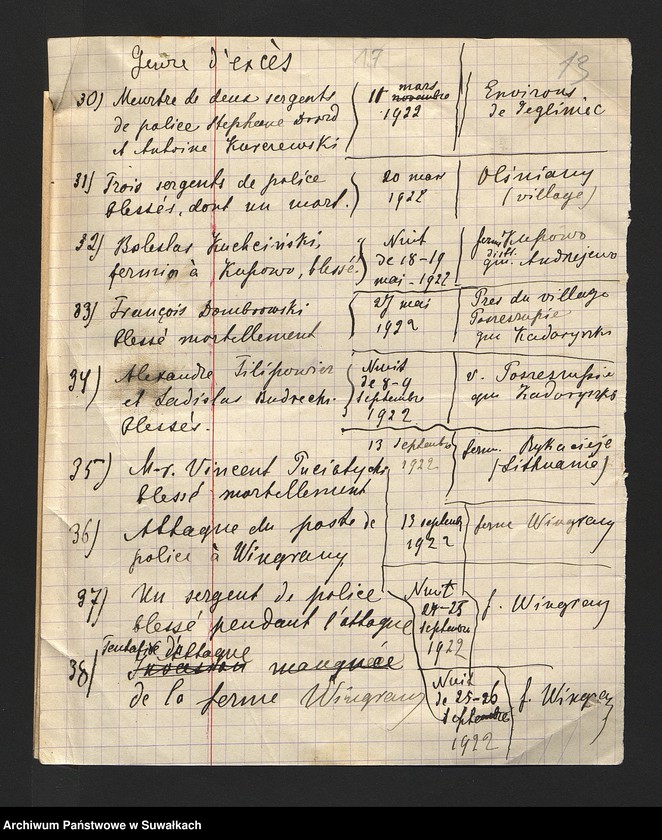 Genre d'excès
13
13
30) Meurtre de deux sergents
de police Stephane Dourd
et Antoine
11 mars
novembre
1922
Environs
de Jegliniec
31) Trois sergents de police
blessés, dont un mort.
20 mars
1922
Olsniany
(village)
32) Boleslas Kuchciński,
fermier à Kupowo, blessé.
Nuit
de 18-19
mai - 1922
ferm. Kupowo
distr.
gm. Andrzejewo
33) François Dombrowski
blessé mortellement
27 mai
1922
Pres du village
Poszeszupie
gm Kadaryszki
34) Alexandre Filipowicz
et Ladislas Budrecki
blessés.
Nuit
de 8-9
septembre
1922
v. Poszeszupie
gm Kadaryszki
35) M-r. Vincent
blessé mortellement
13 septembre
1922
ferm.
(Lithuanie)
36) Attaque du poste de
police à Wingrany
13 septembr
1922
ferme Wingrany
37) Un sergent de police
blessé pendant l'attaque
Nuit
24-25
septembre
1922
f. Wingrany
38) Tentative d'Attaque
manquée
de la ferme Wingrany
Nuit
de 25-26
septembre
1922
f. Wingrany
Archiwum Państwowe w Suwałkach